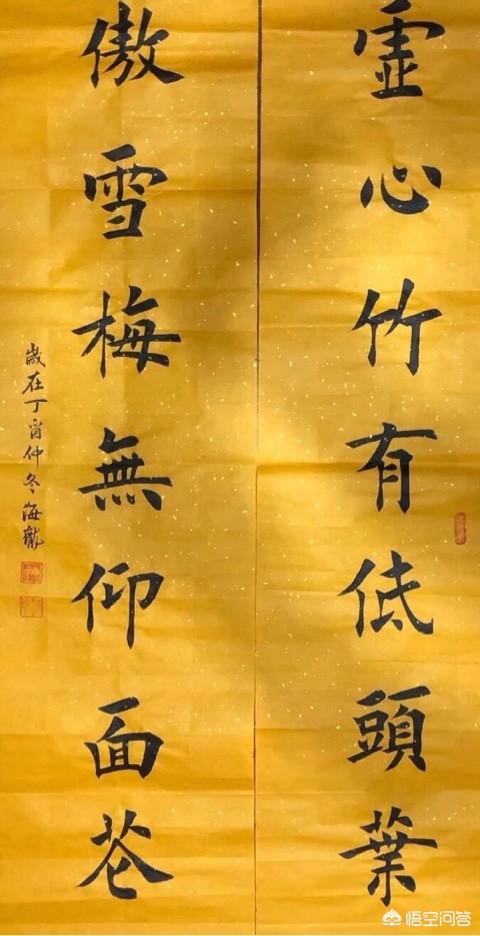 虛心竹有低頭葉
傲雪梅無仰面花
歲在丁酉仲冬海
悟空问答